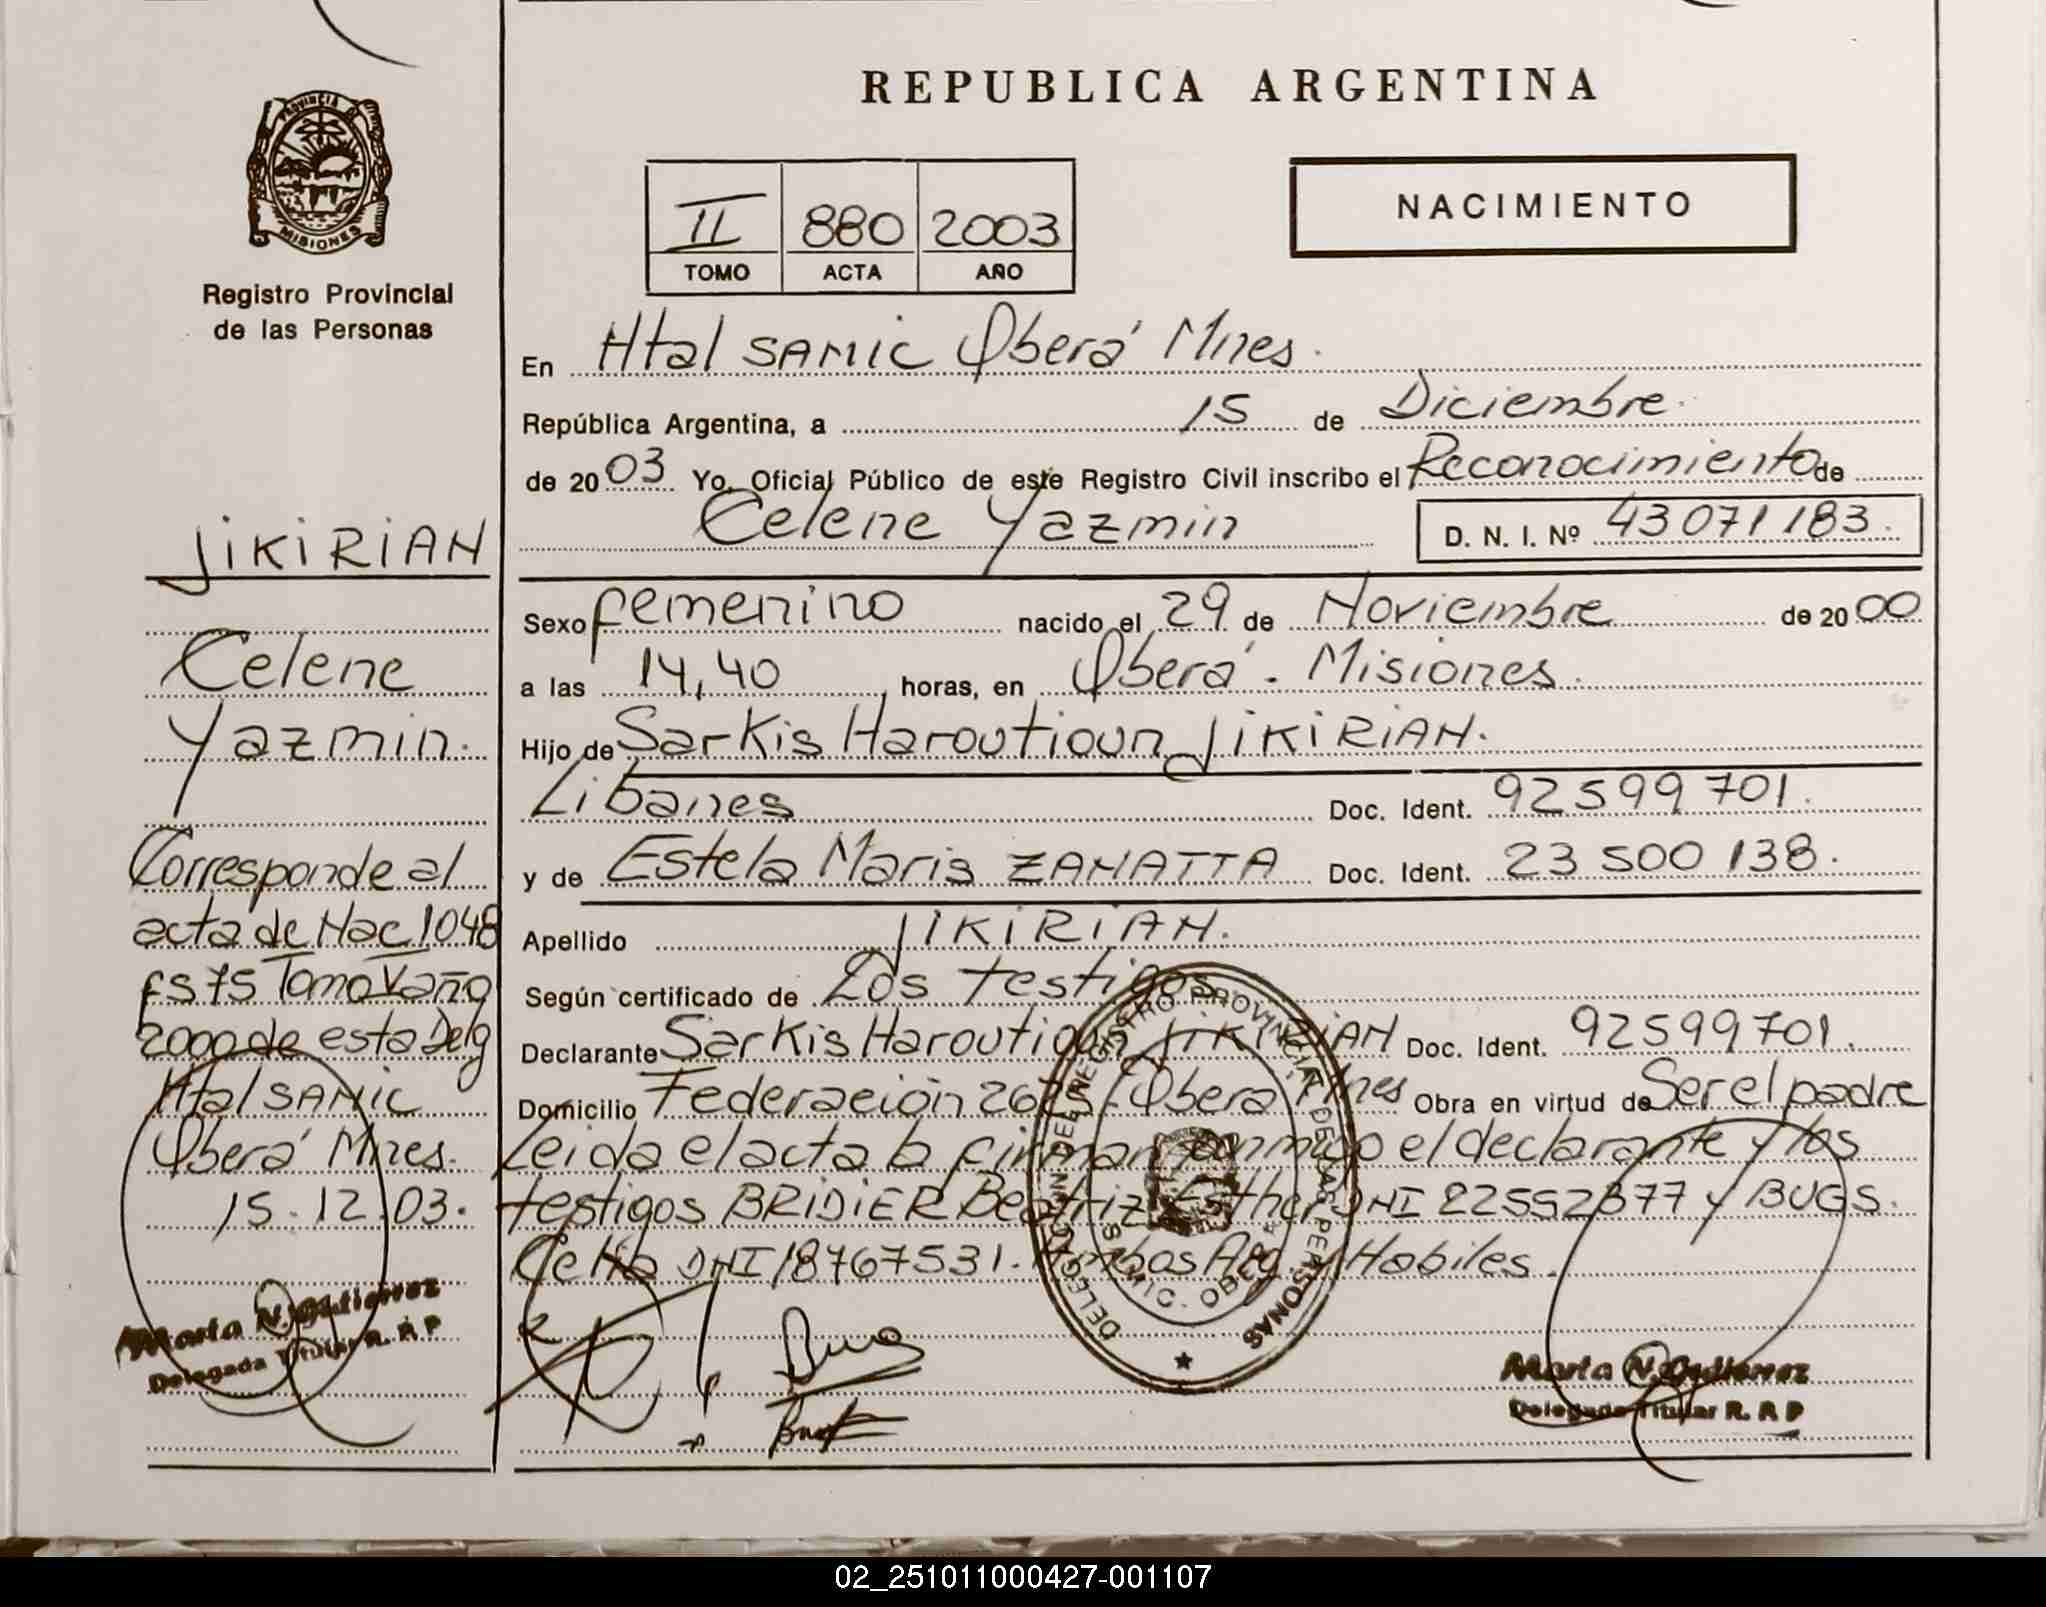 REPUBLICA ARGENTINA
PROVINCIA DE
MISIONES
Registro Provincial
de las Personas
II 880 2003
TOMO ACTA AÑO
NACIMIENTO
En Htal SAMIC Oberá Mnes.
República Argentina, a 15 de Diciembre
de 2003 Yo, Oficial Público de este Registro Civil inscribo el Reconocimiento de
Celene Yazmin D. N. I. Nº 43 071 183.
Sexo femenino nacido el 29 de Noviembre de 2000
a las 14,40 horas, en Oberá - Misiones.
Hijo de Sarkis Haroutioun JIKIRIAN.
Libanes Doc. Ident. 92 599 701.
y de Estela Maris ZANATTA Doc. Ident. 23 500 138.
Apellido JIKIRIAN.
Según certificado de Los testigos
Declarante Sarkis Haroutioun JIKIRIAN Doc. Ident. 92599701.
Domicilio Federación Oberá Mnes Obra en virtud de Ser el padre
Leida el acta la firman conmigo el declarante y los
testigos BRIDIER Beatriz Esther DNI 22552877 y BUGS.
DNI 18767531. Ambos Arg. y Habiles.
JIKIRIAN
Celene
Yazmin.
Corresponde al
acta de Nac 1048
fs 75 Tomo V año
2000 de esta Delg
Htal SAMIC
Oberá Mnes.
15.12.03.
Marta N. Gutierrez
Delegada Titular R. P. P
DELEGACION DEL REGISTRO PROVINCIAL DE LAS PERSONAS
Marta N. Gutierrez
Delegada Titular R. P. P
02_251011000427-001107